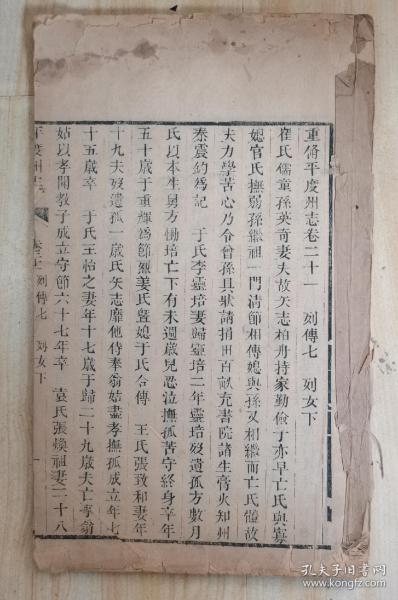 重脩平度州志卷二十一　列傳七　列女下
崔氏儒童孫英奇妻夫故矢志柏舟持家勤儉子亦早亡氏與寡
媳官氏撫弱孫繼祖一門清節相傳媳與孫又相繼而亡氏憶故
夫力學苦心乃令曾孫具狀請捐田百畝充書院諸生膏火知州
秦震鈞為記　于氏李靈培妻歸靈培二年靈培歿遺孤方數月
氏以本生舅方慟培亡下有未週歲兒忍泣撫孤苦守終身卒年
五十歲子重輝為節
姜氏曁媳于氏合傳　王氏張致和妻年
十九夫歿遺孤一歲氏矢志靡他侍奉翁姑盡孝撫孤成立年七
十五歲卒　于氏王怡之妻年十七歲于歸二十九歲夫亡孝翁
姑以孝聞教子成立守節六十七年卒　袁氏張煥祖妻二十八
平度州志
列傳七　列女下
孔夫子旧书网
www.kongfz.com